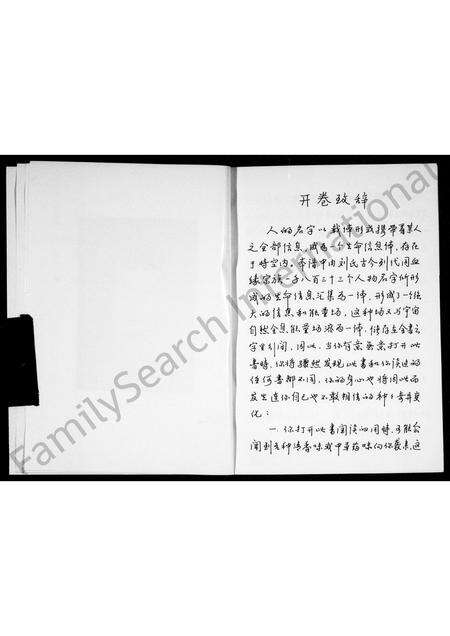 开卷致辞
人的名字以载体形式携带着某人
之全部信息,成为一个生命信息体,存在
于时空内。本谱中内刘氏古今列代同血
缘宗族一千八百三十三个人物名字所形
成的生命信息汇集为一体,形成了一个强
大的信息和能量场,这种场又与宇宙
自然全息能量场源为一体,储存在全书之
字里行间,因此,当你有意无意打开此
书时,你将骤然发现此书和你读过的
任何书都不同,你的身心也将因此而
发生连你自己也不敢相信的种种奇异变
化:
一、你打开此书阅读的同时,可能会
闻到各种清香味或中草药味向你袭来,这
FamilySearch International